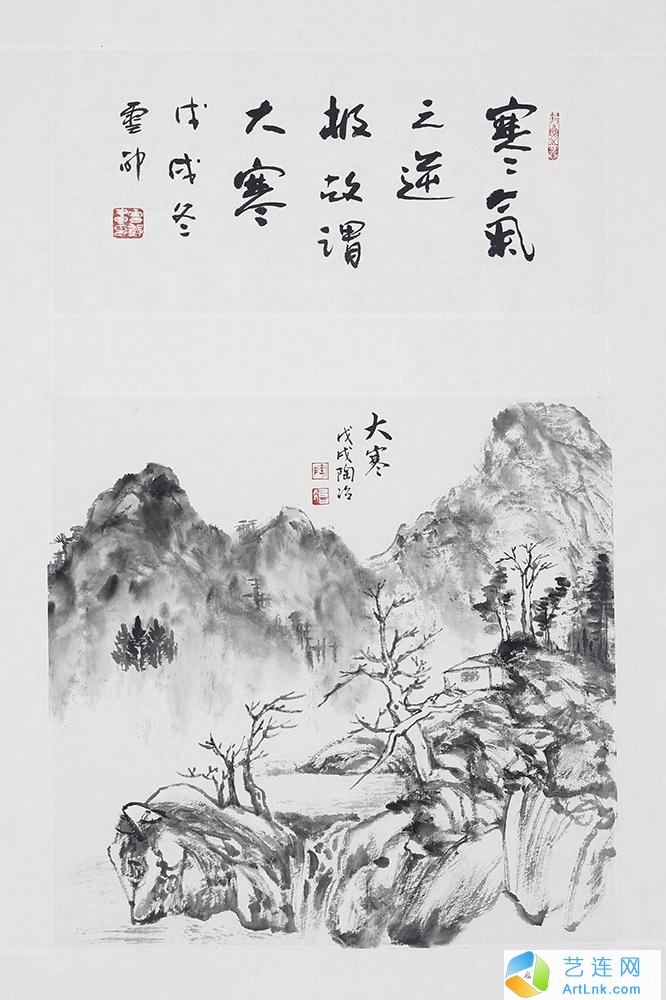 寒氣
之逆
极故謂
大寒
戊戌冬
雲
大寒
戊戌陶冶
艺连网
ArtLnk.com